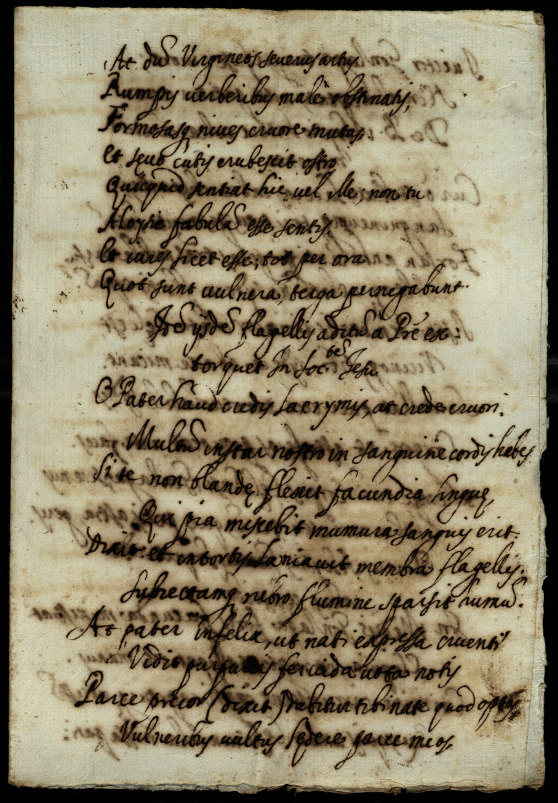 At dũ Virgineos severus artus
Rumpis verberibus malè obstinatis,
Formosasq nives cruore mutas,
Et sęvo cutis erubescit ostro
Quicquid sentiat hic, vel ille; non tu
Aloysie fabulã esse sentis.
Et iures licet esse; tot per ora
Quot sunt vulnera, terga pernegabunt.
Itẽ ijsdẽ flagellis aditũ a Prẽ ex:
torquet In Soc.tẽ Jesu
O Pater haud credis lacrymis, at crede cruori.
Multũ instar nostro in sanguine cordis habes
Si te non blandę flexit facundia linguę
Qui pia miscebit murmura sanguis erit.
Dixit: et intortis laniavit membra flagellis.
Subiectamq rubro flumine sparsit humũ.
At pater infelix, ut nati expressa cruentis
Vidit purpureis fervida vota notis
Parce precor (dixit) dabitur tibi nate quod optas
Vulneribus vultus lędere parce meos